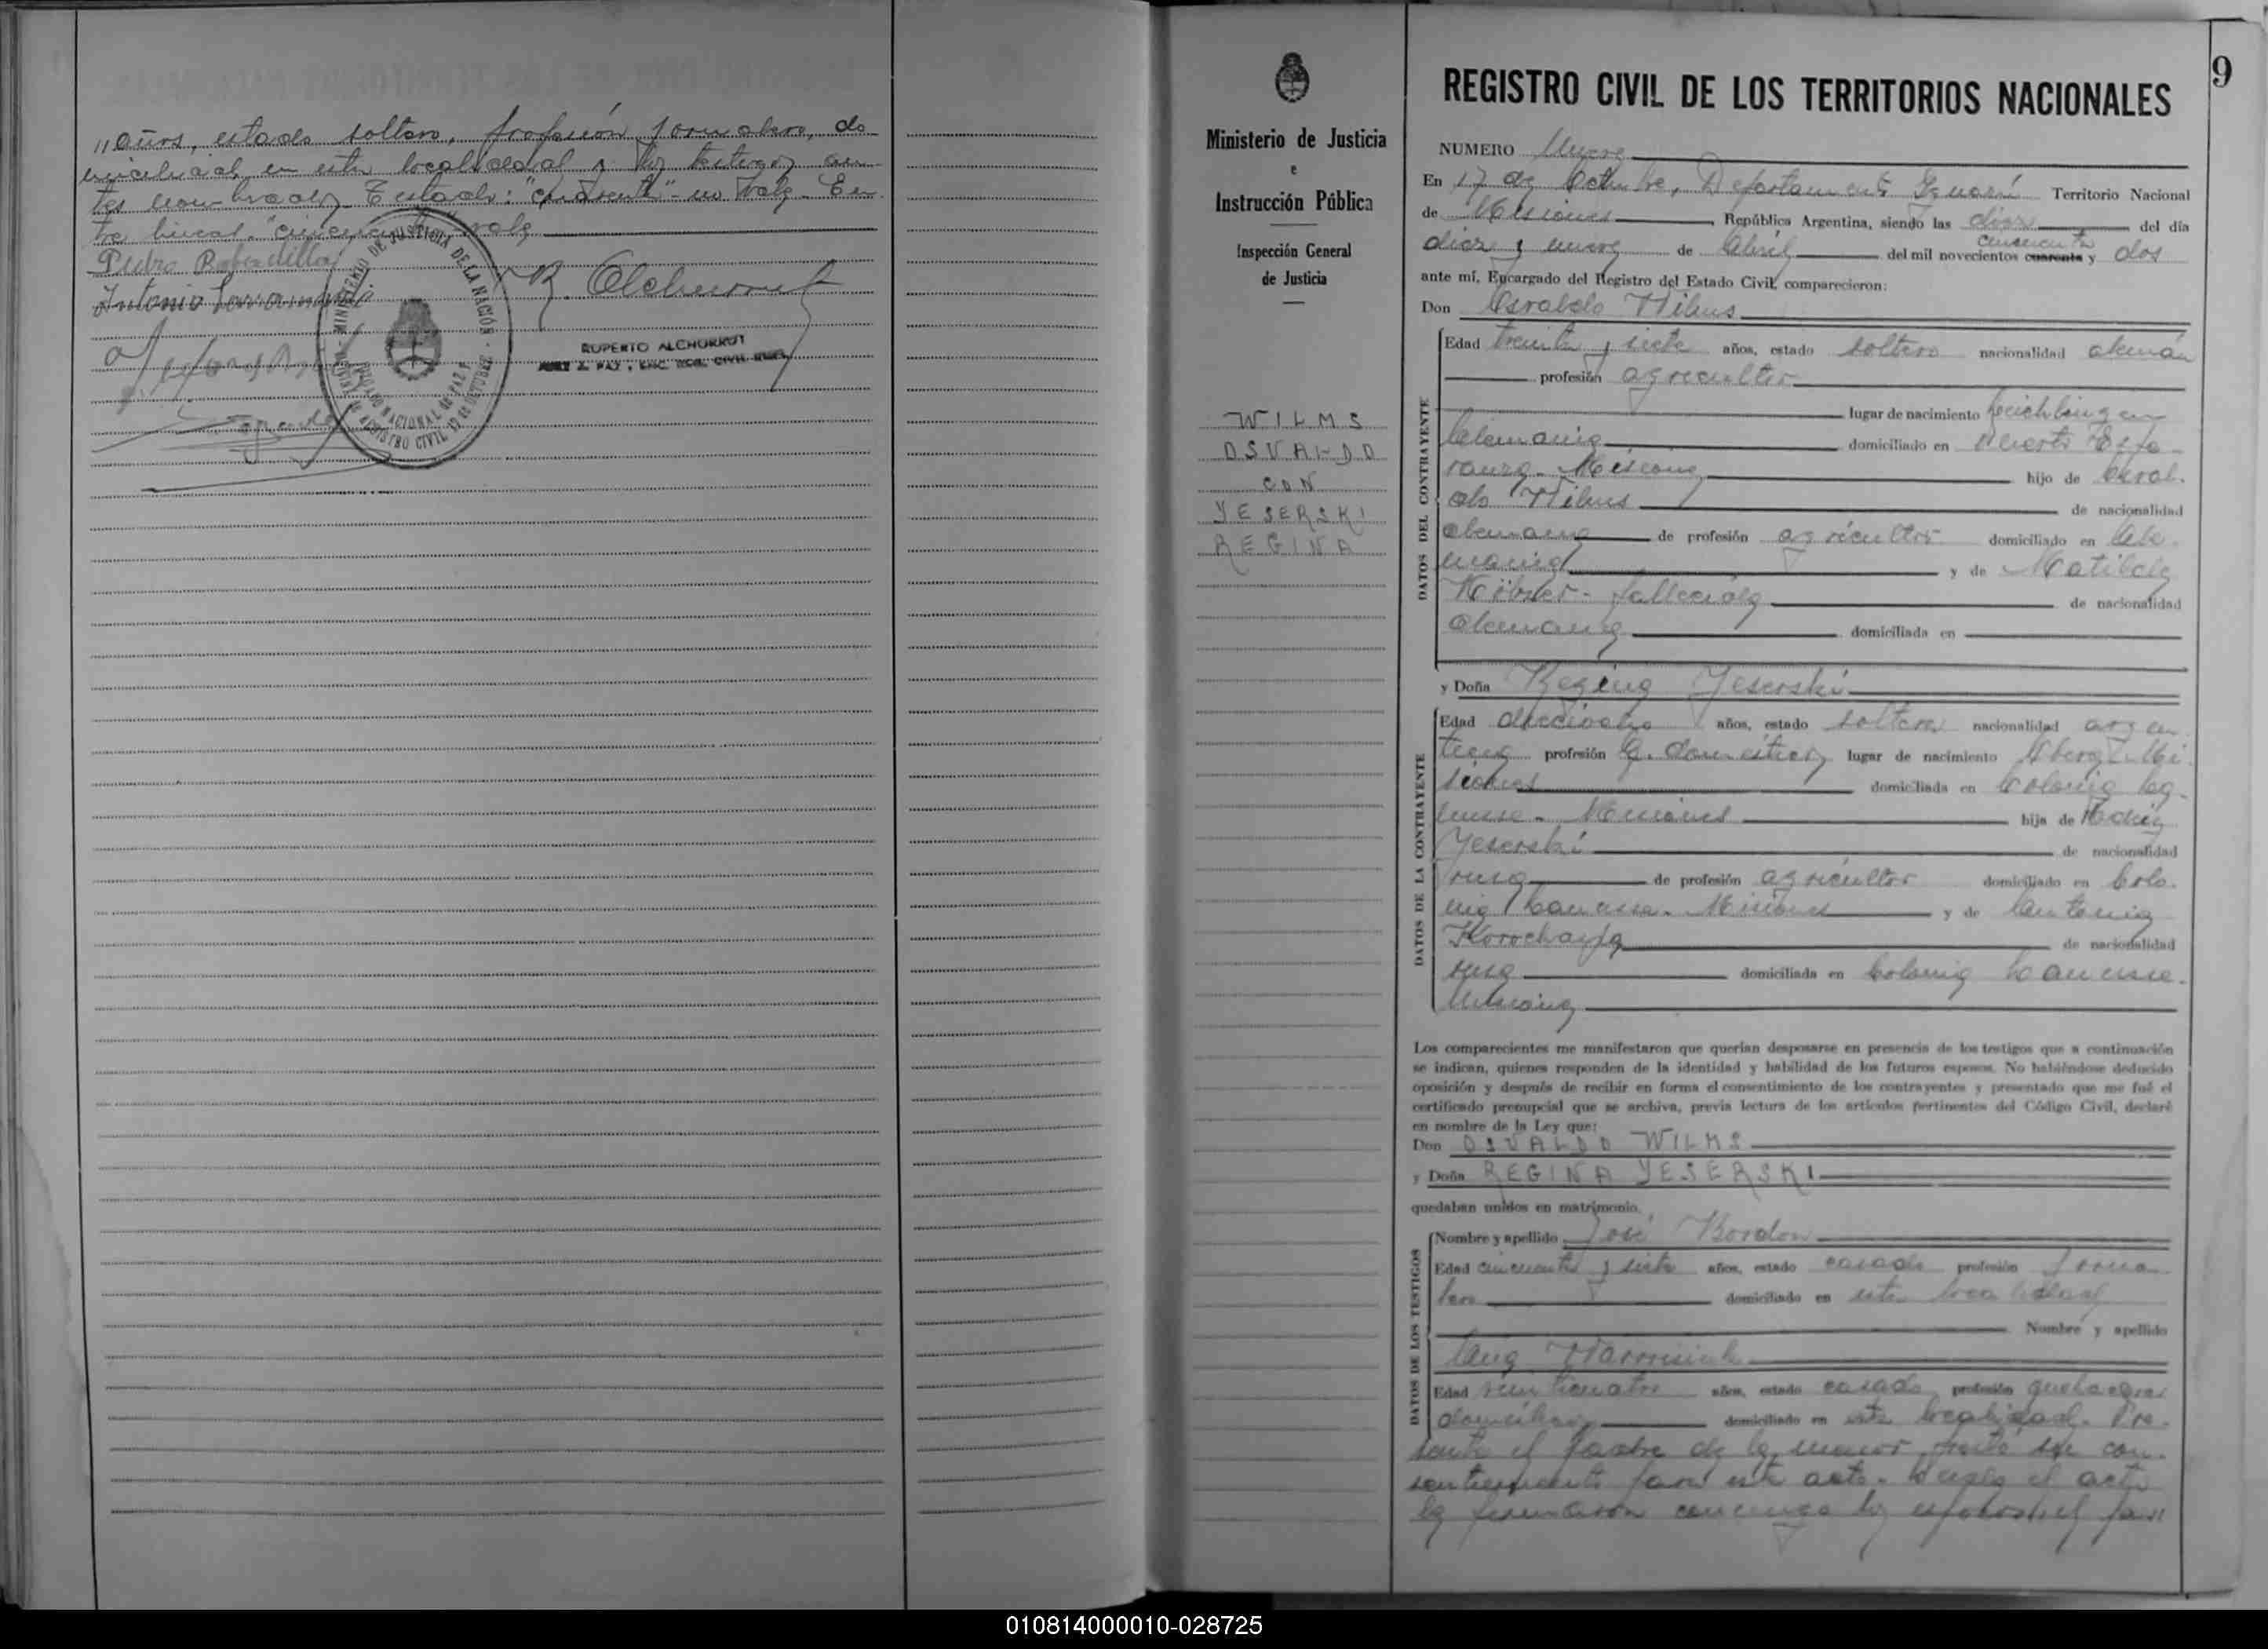 " años, estado soltero, profesión jornalero, do-
miciliado en esta localidad y los testigos an-
tes nombrados. Testado: "cuarenta" - no vale - En-
tre lineas: "cincuenta" vale
Pedro
Antonio
R. Alchurrut
RUPERTO ALCHURRUT
JUEZ de PAZ y ENC. REG. CIVIL
MINISTERIO DE JUSTICIA DE LA NACIÓN
JUZGADO NACIONAL de PAZ
REGISTRO CIVIL 17 de OCTUBRE
9
Ministerio de Justicia
e
Instrucción Pública
Inspección General
de Justicia
WILMS
OSVALDO
CON
YESERSKI
REGINA
REGISTRO CIVIL DE LOS TERRITORIOS NACIONALES
NUMERO Nueve
En 17 de Octubre, Departamento Iguazú Territorio Nacional
de Misiones República Argentina, siendo las diez del día
diez y nueve de Abril del mil novecientos cuarenta y cincuenta dos
ante mí, Encargado del Registro del Estado Civil, comparecieron:
Don Osvaldo Wilms
DATOS DEL CONTRAYENTE
Edad treinta y siete años, estado soltero nacionalidad alemán
profesión agricultor
lugar de nacimiento Leichlingen
Alemania domiciliado en Puerto Espe-
ranza - Misiones hijo de Osval-
do Wilms de nacionalidad
alemana de profesión agricultor domiciliado en Ale-
mania y de Matilde
fallecida de nacionalidad
alemana domiciliada en
y Doña Regina Yeserski
DATOS DE LA CONTRAYENTE
Edad dieciocho años, estado soltera nacionalidad argen-
tina profesión Q. domésticos lugar de nacimiento Oberá - Mi-
siones domiciliada en Colonia La-
nusse - Misiones hija de
Yeserski de nacionalidad
rusa de profesión agricultor domiciliado en Colo-
nia Lanusse - Misiones y de Antonia
de nacionalidad
rusa domiciliada en Colonia Lanusse -
Misiones
Los comparecientes me manifestaron que querían desposarse en presencia de los testigos que a continuación
se indican, quienes responden de la identidad y habilidad de los futuros esposos. No habiéndose deducido
oposición y después de recibir en forma el consentimiento de los contrayentes y presentado que me fué el
certificado prenupcial que se archiva, previa lectura de los artículos pertinentes del Código Civil, declaré
en nombre de la Ley que:
Don OSVALDO WILMS
y Doña REGINA YESERSKI
quedaban unidos en matrimonio.
DATOS DE LOS TESTIGOS
Nombre y apellido José Bordon
Edad cincuenta y siete años, estado casado profesión jorna-
lero domiciliado en esta localidad
Nombre y apellido
Edad veinticuatro años, estado casada profesión quehaceres
domésticos domiciliado en esta localidad. Pre-
sente el padre de la menor prestó su con-
sentimiento para este acto. Leída el acta
la firmaron conmigo los esposos, el pa "
010814000010-028725